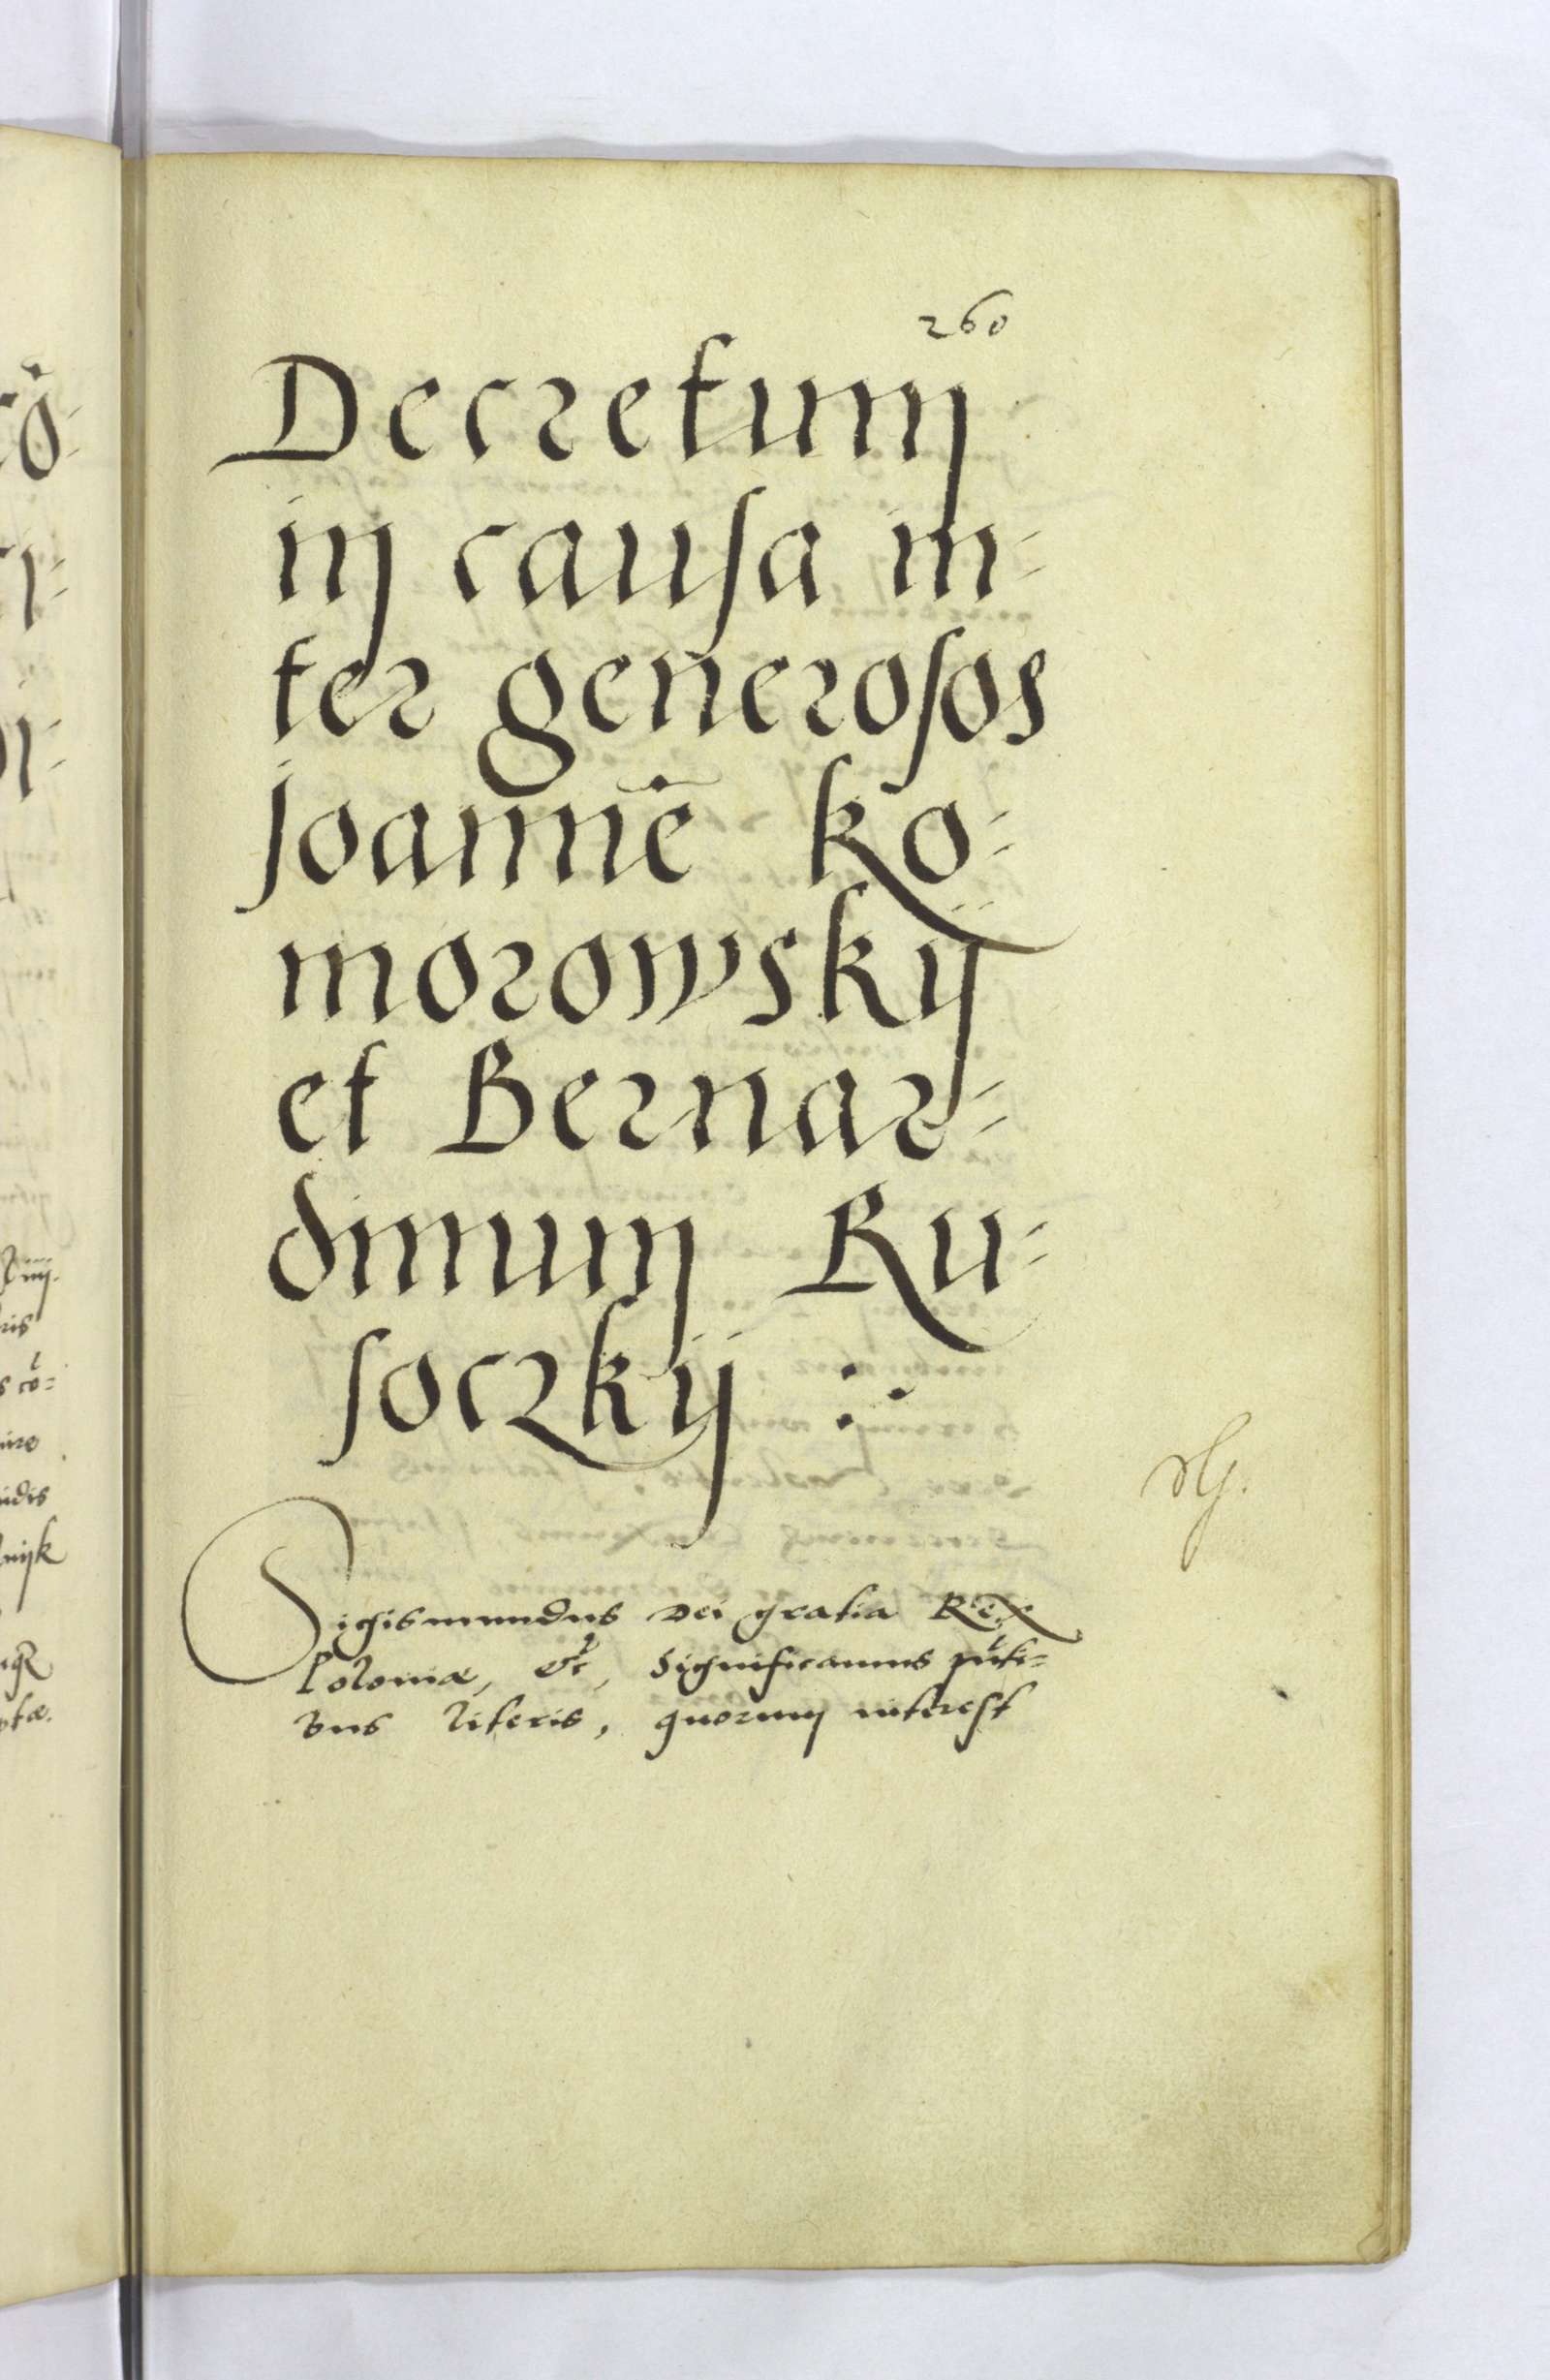 260
Decretum
in causa in-
ter generosos
Joannē Ko-
morowskÿ
et Bernar-
dinum Ru-
soczkÿ
Sigismundus Dei gratia Rex
Poloniæ, etc, Significamus p̄nti-
bus literis, quorum interest